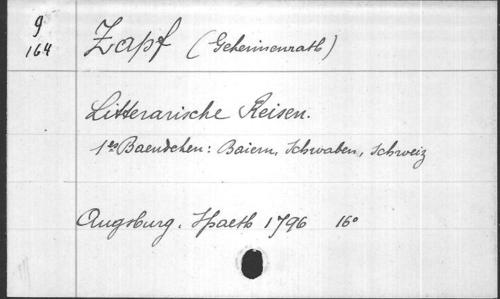 9
164
Zapf (Geheimenrath)
Litterarische Reisen.
1es Baendchen: Baiern, Schwaben, Schweiz
Augsburg. Spaeth 1796 16°